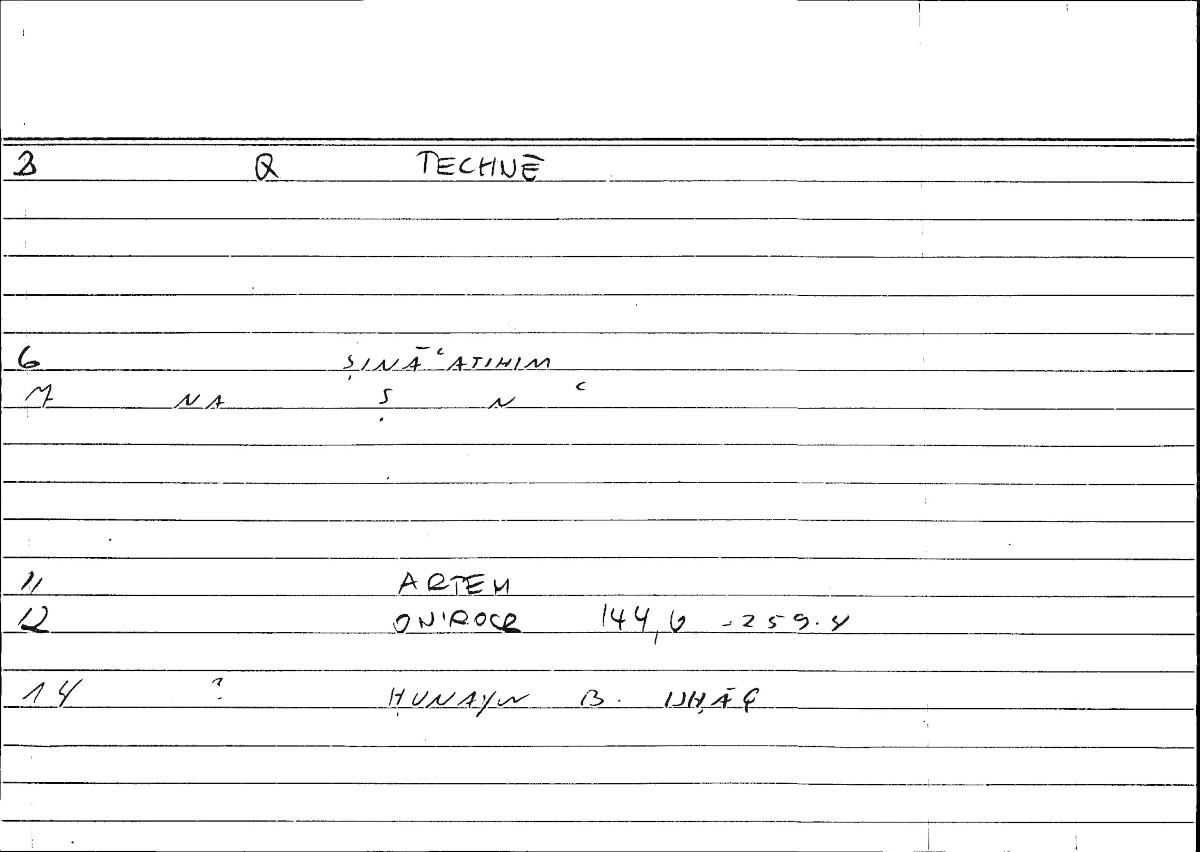 3 Q TECHNĒ
6 ṢINĀʿATIHIM
7 NA Ṣ N ʿ
11 ARTEM
12 ONIROCR 144,6 - 259.4
14 ? ḤUNAYN B. ISḤĀQ